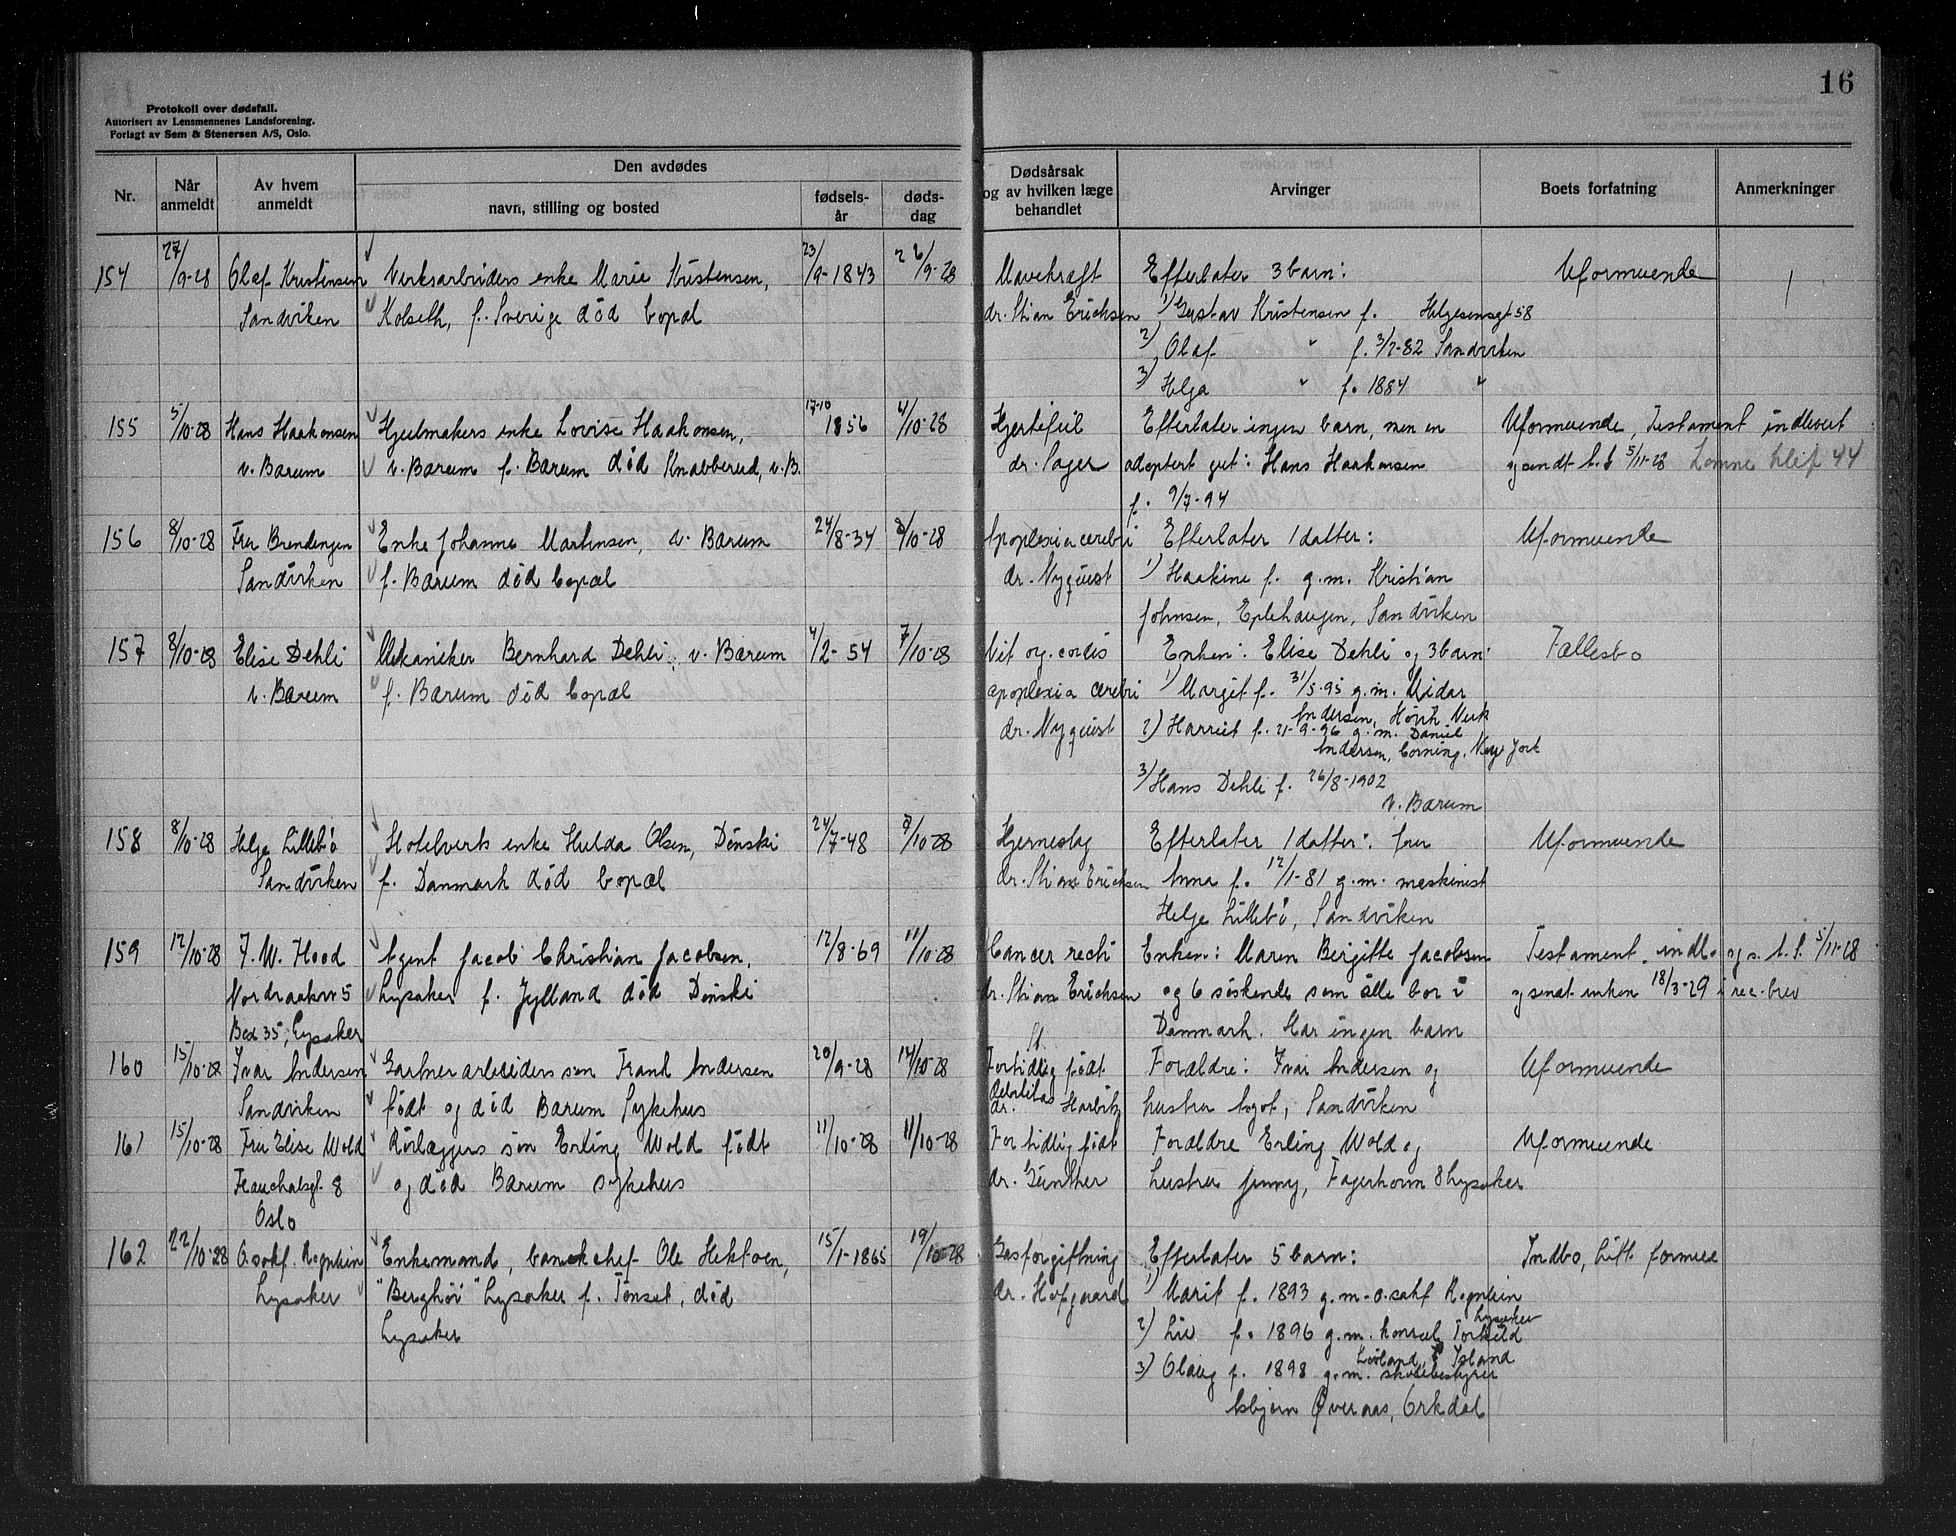 16
Protokoll over dødsfall.
Autorisert av Lensmennenes Landsforening.
Forlagt av Sem & Stenersen A/S, Oslo.
Nr. Når anmeldt Av hvem anmeldt Den avdødes navn, stilling og bosted fødselsår dødsdag Dødsårsak og av hvilken læge behandlet Arvinger Boets forfatning Anmerkninger
154 27/9-28 Olaf Kristensen Verksarbeiders enke Marie Kristensen, 23/9-1843 26/9-28 Mavekræft Efterlater 3 barn: Uformuende
Sandviken Kolseth, f. Sverige död bopæl dr. Stian Erichsen 1) Gustav Kristensen f. Helgesensgt 58
2) Olaf " f. 3/7-82 Sandviken
3) Helga " f. 1884 "
155 5/10-28 Hans Haakonsen Hjulmakers enke Lovise Haakonsen, 17-10 1856 4/10-28 Hjertefeil Efterlater ingen barn, men en Uformuende, Testament indlevert
v. Bærum v. Bærum f. Bærum död Knabberud, v. B. dr. Sager adoptert gut: Hans Haakonsen og sendt t. S 5/11-28 44
f. 9/7-94
156 8/10-28 Fru Brendengen Enke Johanne Martinsen, v. Bærum 24/8-34 8/10-28 Apoplexia cerebri Efterlater 1 datter: Uformuende
Sandviken f. Bærum död bopæl dr. Nyquist 1) Haakine f. g.m. Kristian
Johnsen, Eplehaugen, Sandviken
157 8/10-28 Elise Dehli Mekaniker Bernhard Dehli, v. Bærum 4/2-54 7/10-28 Vit. org. cordis Enken: Elise Dehli og 3 barn: Fællesbo
v. Bærum f. Bærum död bopæl apoplexia cerebri 1) Margit f. 31/5-95 g.m. Midar
Andersen, Verk
dr. Nyquist 2) Harriet f. 21-9-96 g.m. Daniel
Andersen, Corning, New York
3) Hans Dehli f. 26/8-1902
v. Bærum
158 8/10-28 Helge Lillebö Hotelverts enke Hulda Olsen, Dönski 24/7-48 7/10-28 Hjerneslag Efterlater 1 datter: fru Uformuende
Sandviken f. Danmark död bopæl dr. Stian Erichsen Anna f. 12/1-81 g.m. maskinist
Helge Lillebö, Sandviken
159 12/10-28 F. W. Hood Agent Jacob Christian Jacobsen, 12/8-69 11/10-28 Cancer recti Enken: Maren Birgitte Jacobsen Testament indl. og s. t. S. 5/11-28
Nordraaksv 5 Lysaker f. Jylland död Dönski dr. Stian Erichsen og 6 söskende som alle bor i og sendt enken 18/3-29 i rec. brev
Box 35, Lysaker Danmark. Har ingen barn
160 15/10-28 Ivar Andersen Gartnerarbeiders sön Frank Andersen 20/9-28 14/10-28 Fortidlig födt Foræeldre: Ivar Andersen og Uformuende
Sandviken födt og död Bærum Sykehus debilitas dr. Harbitz hustru Agot, Sandviken
161 15/10-28 Fru Elise Wold Rörlæggers sön Erling Wold födt 11/10-28 11/10-28 For tidlig födt Forældre Erling Wold og Uformuende
Frauchalsgt. 8 og död Bærum sykehus dr. Günther hustru Jenny, Fagerhorm 8 Lysaker
Oslo
162 22/10-28 O.sakf. Rognlien Enkemand, bankchef Ole Hektoen, 15/1-1865 19/10-28 Gasforgiftning Efterlater 5 barn: Indbo, Litt formue
Lysaker "Berghöi" Lysaker f. Tönset, död dr. Hofgaard 1) Marit f. 1893 g.m. o.sakf Rognlien
Lysaker
Lysaker 2) Liv f. 1896 g.m. konsul Torkild
Island
3) Olaug f. 1898 g.m. skolebestyrer
Asbjörn Øveraas, Orkdal